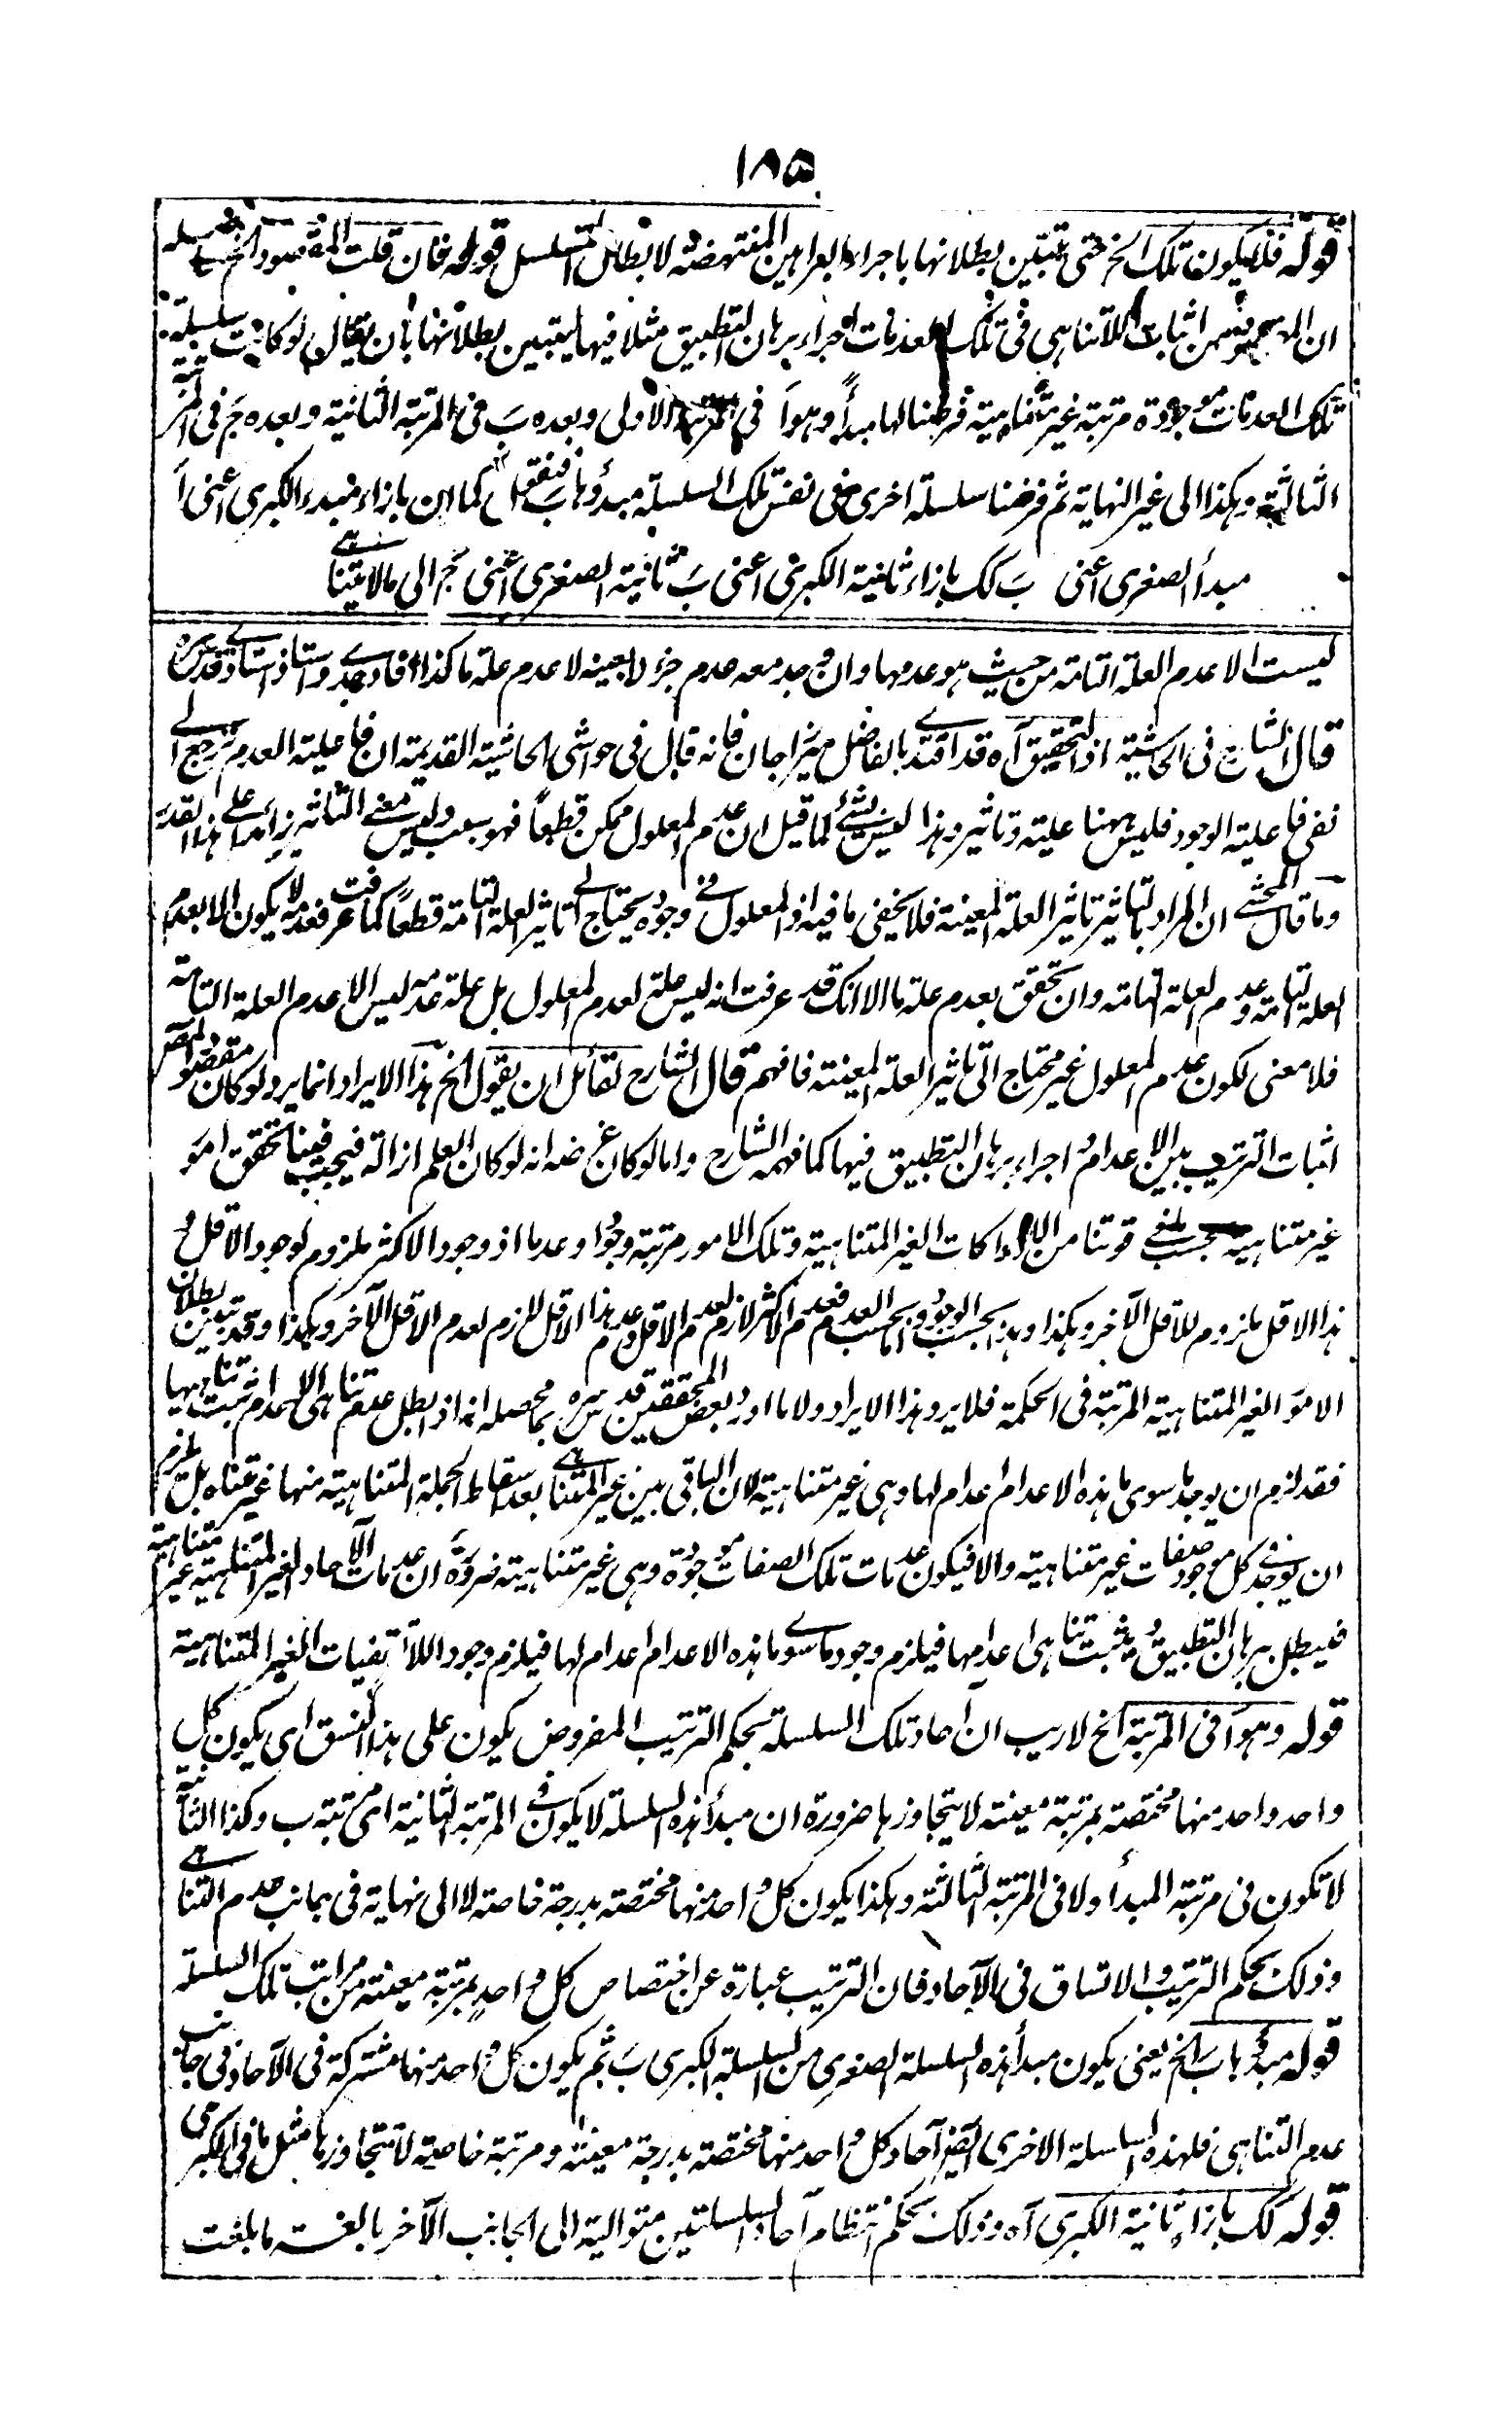 ١٨٥
قوله فلا يكون تلك الخ حتى يتبين بطلانها باجراء البراهين المنتهضة لابطال التسلسل قوله فان قلت المقصود الخ حاصله
ان المقصود من اثبات اللاتناهى فى تلك العدمات اجراء برهان التطبيق مثلا فيها ليتبين بطلانها بان يقال لو كانت سلسلة
تلك العدمات موجودة مرتبة غير متناهية فرضنا لها مبدأ وهو اَ فى المرتبة الاولى وبعده بَ فى المرتبة الثانية وبعده جَ فى المرتبة
الثالثة وهكذا الى غير النهاية ثم فرضنا سلسلة اخرى فى نفس تلك السلسلة مبدؤها بَ فنقول كما ان بازاء مبدء الكبرى اعنى اَ
مبدأ الصغرى اعنى بَ كك بازاء ثانية الكبرى اعنى بَ ثانية الصغرى اعنى جَ الى مالا يتناهى
ليست الا عدم العلة التامة من حيث هو عدمها وان وجد معه عدم جزء لا بعينه لا عدم علة ما كذا افاد جدى واستاذ استاذى قدس سره
قال الشارح فى الحاشية اذ التحقيق آه قد اقتدى بالفاضل ميرزا جان فانه قال فى حواشى الحاشية القديمة ان فاعلية العدم ترجع الى
نفى فاعلية الوجود فليس ههنا علية وتاثير وهذا ليس بشئ لما قيل ان عدم المعلول ممكن قطعاً فهو بسبب وليس معنى التاثير زائدا على هذا القدر
وما قال المحشى ان المراد بالتاثير تاثير العلة المعينة فلا يخفى ما فيه اذ المعلول فى وجوده يحتاج الى تاثير العلة التامة قطعاً كما عرفت فعدمه لا يكون الا بعدم
العلة التامة وعدم العلة التامة وان تحقق بعدم علة ما الا انك قد عرفت انه ليس علة لعدم المعلول بل علة عدمه ليس الا عدم العلة التامة
فلا معنى لكون عدم المعلول غير محتاج الى تاثير العلة المعينة فافهم قال الشارح لقائل ان يقول الخ هذا الايراد انما يرد لو كان مقصود المصنف
اثبات الترتيب بين الاعدام اجراء برهان التطبيق فيها كما فهمه الشارح واما لو كان غرضه انه لو كان العلم ازالة فيجب فينا تحقق امور
غير متناهية بحسب ما فى قوتنا من الادراكات الغير المتناهية وتلك الامور مرتبة وجودا وعدما اذ وجود الاكثر ملزوم لوجود الاقل و
هذا الاقل ملزوم للاقل الآخر وهكذا وهذا بحسب الوجود واما بحسب العدم فعدم الاكثر لازم لعدم الاقل وعدم هذا الاقل لازم لعدم الاقل الآخر وهكذا وقد تبين بطلان
الامور الغير المتناهية المرتبة فى الحكمة فلا يرد هذا الايراد ولا ما اورد بعض المحققين قدس سره بما محصله انه اذا بطل عدم تناهى الاعدام ثبت تناهيها
فقد لزم ان يوجد ما سوى هذه الاعدام اعدام لها وهى غير متناهية لان الباقى بين غير المتناهى بعد اسقاط الجملة المتناهية منها غير متناه بل لزم
ان يوجد فى كل موجود صفات غير متناهية والا فيكون عدمات تلك الصفات موجودة وهى غير متناهية ضرورة ان عدمات الآحاد الغير المتناهية غير متناهية
فيبطل ببرهان التطبيق ويثبت تناهى اعدامها فيلزم وجود ما سوى هذه الاعدام اعدام لها فيلزم وجود اللا تفيات الغير المتناهية
قوله وهو اَ فى المرتبة الخ لا ريب ان آحاد تلك السلسلة بحكم الترتيب المفروض يكون على هذا النسق اى يكون كل
واحد واحد منها مختصة بمرتبة معينة لا يتجاوزها ضرورة ان مبدأ هذه السلسلة لا يكون فى المرتبة الثانية اى مرتبة ب وكذا الثانية
لا تكون فى مرتبة المبدأ ولا فى المرتبة الثالثة وهكذا يكون كل واحد منها مختصة بدرجة خاصة لا الى نهاية فى جانب عدم التناهى
وذلك بحكم الترتيب والاتساق فى الآحاد فان الترتيب عبارة عن اختصاص كل واحد بمرتبة معينة من مراتب تلك السلسلة
قوله مبدؤها بَ الخ يعنى يكون مبدأ هذه السلسلة الصغرى من السلسلة الكبرى بَ ثم يكون كل واحد منها مشتركة فى الآحاد فى جانب
عدم التناهى فلهذه السلسلة الاخرى ايضا آحاد كل واحد منها مختصة بدرجة معينة ومرتبة خاصة لا تتجاوزها مثل ما فى الكبرى
قوله كك بازاء ثانية الكبرى آه وذلك بحكم انتظام آحاد السلسلتين متوالية الى الجانب الآخر بالغة ما بلغت